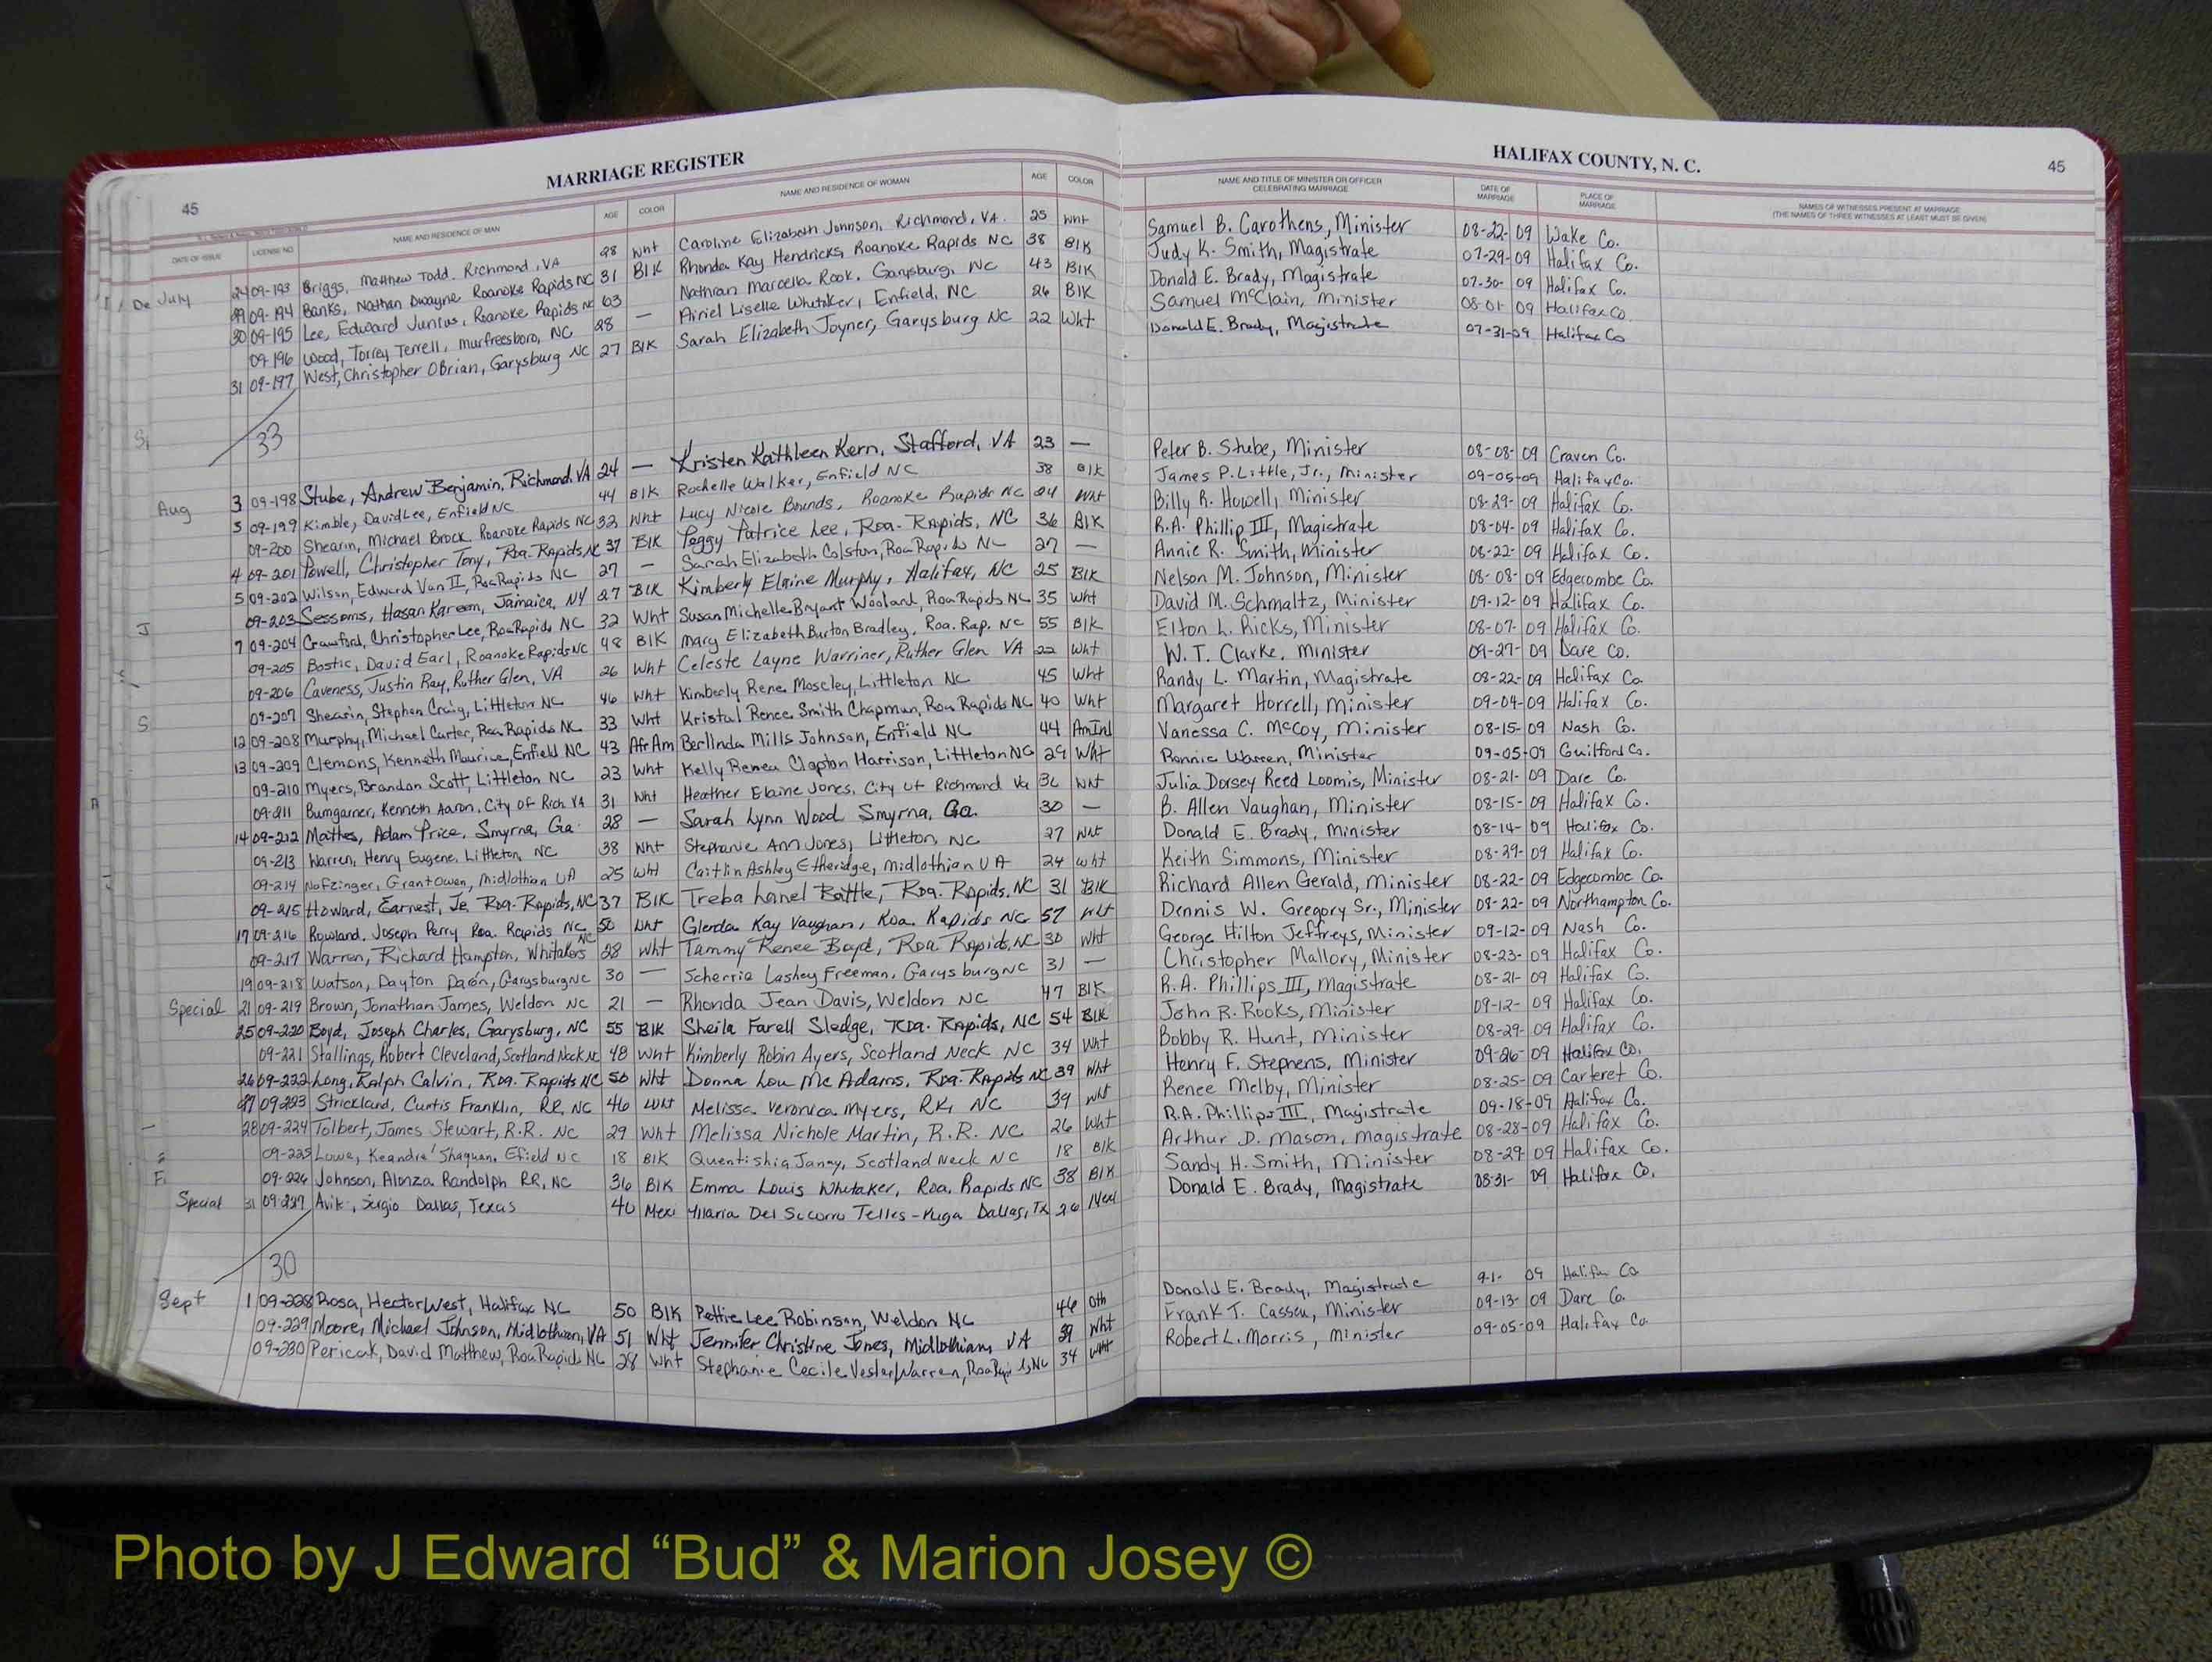 MARRIAGE REGISTER
HALIFAX COUNTY, N. C.
45
45
DATE OF ISSUE LICENSE NO NAME AND RESIDENCE OF MAN AGE COLOR NAME AND RESIDENCE OF WOMAN AGE COLOR NAME AND TITLE OF MINISTER OR OFFICER CELEBRATING MARRIAGE DATE OF MARRIAGE PLACE OF MARRIAGE NAMES OF WITNESSES PRESENT AT MARRIAGE (THE NAMES OF THREE WITNESSES AT LEAST MUST BE GIVEN)
July 24 09-193 Briggs, Matthew Todd. Richmond, VA 28 Wht Caroline Elizabeth Johnson, Richmond, VA. 25 Wht Samuel B. Carothens, Minister 08-22-09 Wake Co.
29 09-194 Banks, Nathan Dwayne Roanoke Rapids NC 31 Blk Rhonda Kay Hendricks, Roanoke Rapids NC 38 Blk Judy K. Smith, Magistrate 07-29-09 Halifax Co.
30 09-195 Lee, Edward Junius, Roanoke Rapids NC 63 Marcella Rook, NC 43 Blk Donald E. Brady, Magistrate 07-30-09 Halifax Co.
09-196 Wood, Torrey Terrell, Murfreesboro, NC 28 — Airiel Liselle Whitaker, Enfield, NC 26 Blk Samuel McClain, Minister 08-01-09 Halifax Co.
31 09-197 West, Christopher OBrian, Garysburg NC 27 Blk Sarah Elizabeth Joyner, Garysburg NC 22 Wht Donald E. Brady, Magistrate 07-31-09 Halifax Co
33
Aug 3 09-198 Stube, Andrew Benjamin, Richmond, VA 24 — Kristen Kathleen Kern, Stafford, VA 23 — Peter B. Stube, Minister 08-08-09 Craven Co.
3 09-199 Kimble, David Lee, Enfield NC 44 Blk Rochelle Walker, Enfield NC 38 Blk James P. Little, Jr., Minister 09-05-09 Halifax Co.
09-200 Shearin, Michael Brock Roanoke Rapids NC 32 Wht Lucy Nicole Bounds, Roanoke Rapids NC 24 Wht Billy R. Howell, Minister 08-29-09 Halifax Co.
4 09-201 Powell, Christopher Tony, Roa. Rapids NC 37 Blk Peggy Patrice Lee, Roa. Rapids, NC 36 Blk R.A. Phillip III, Magistrate 08-04-09 Halifax Co.
5 09-202 Wilson, Edward Van II, Roa Rapids NC 27 — Sarah Elizabeth Colston, Roa Rapids NC 27 — Annie R. Smith, Minister 08-22-09 Halifax Co.
09-203 Sessoms, Hasan Kareem, Jamaica, NY 27 Blk Kimberly Elaine Murphy, Halifax, NC 25 Blk Nelson M. Johnson, Minister 08-08-09 Edgecombe Co.
7 09-204 Crawford, Christopher Lee, Roa Rapids NC 32 Wht Susan Michelle Bryant Woolard, Roa Rapids NC 35 Wht David M. Schmaltz, Minister 09-12-09 Halifax Co.
09-205 Bostic, David Earl, Roanoke Rapids NC 48 Blk Mary Elizabeth Burton Bradley, Roa. Rap. NC 55 Blk Elton L. Ricks, Minister 08-07-09 Halifax Co.
09-206 Caveness, Justin Ray, Ruther Glen, VA 26 Wht Celeste Layne Warriner, Ruther Glen VA 22 Wht W. T. Clarke, Minister 09-27-09 Dare Co.
09-207 Shearin, Stephen Craig, Littleton NC 46 Wht Kimberly Rene Moseley, Littleton NC 45 Wht Randy L. Martin, Magistrate 08-22-09 Halifax Co
12 09-208 Murphy, Michael Carter, Roa Rapids NC 33 Wht Kristal Renee Smith Chapman, Roa Rapids NC 40 Wht Margaret Horrell, Minister 09-04-09 Halifax Co.
13 09-209 Clemons, Kenneth Maurice, Enfield NC 43 AfrAm Berlinda Mills Johnson, Enfield NC 44 AmInd Vanessa C. McCoy, Minister 08-15-09 Nash Co.
09-210 Myers, Brandon Scott, Littleton NC 23 Wht Kelly Renea Clapton Harrison, Littleton NC 29 Wht Ronnie Warren, Minister 09-05-09 Guilford Co.
09-211 Bumgarner, Kenneth Aaron, City of Rich VA 31 Wht Heather Elaine Jones, City of Richmond Va Wht Julia Dorsey Reed Loomis, Minister 08-21-09 Dare Co.
14 09-212 Mathes, Adam Price, Smyrna, Ga. 28 — Sarah Lynn Wood Smyrna, Ga. 30 — B. Allen Vaughan, Minister 08-15-09 Halifax Co.
09-213 Warren, Henry Eugene, Littleton NC 38 Wht Stephanie Ann Jones, Littleton, NC 27 Wht Donald E. Brady, Minister 08-14-09 Halifax Co.
09-214 Nofzinger, Grant Owen, Midlothian VA 25 Wht Caitlin Ashley Etheridge, Midlothian VA 24 Wht Keith Simmons, Minister 08-29-09 Halifax Co.
09-215 Howard, Earnest, Je Roa. Rapids, NC 37 Blk Treba Lanel Battle, Roa. Rapids, NC 31 Blk Richard Allen Gerald, Minister 08-22-09 Edgecombe Co.
17 09-216 Rowland, Joseph Perry Roa. Rapids NC 50 Wht Glenda Kay Vaughan, Roa. Rapids NC 57 Wht Dennis W. Gregory Sr., Minister 08-22-09 Northampton Co.
09-217 Warren, Richard Hampton, Whitakers NC 28 Wht Tammy Renee Boyd, Roa Rapids, NC 30 Wht George Hilton Jeffreys, Minister 09-12-09 Nash Co.
19 09-218 Watson, Dayton Daón, Garysburg NC 30 — Scherria Lashey Freeman, Garysburg NC 31 — Christopher Mallory, Minister 08-23-09 Halifax Co.
Special 21 09-219 Brown, Jonathan James, Weldon NC 21 — Rhonda Jean Davis, Weldon NC 47 Blk R.A. Phillips III, Magistrate 08-21-09 Halifax Co.
25 09-220 Boyd, Joseph Charles, Garysburg, NC 55 Blk Sheila Farell Sledge, Roa. Rapids, NC 54 Blk John R. Rooks, Minister 09-12-09 Halifax Co.
09-221 Stallings, Robert Cleveland, Scotland Neck NC 48 Wht Kimberly Robin Ayers, Scotland Neck NC 34 Wht Bobby R. Hunt, Minister 08-29-09 Halifax Co.
26 09-222 Long, Ralph Calvin, Roa. Rapids NC 50 Wht Donna Lou McAdams, Roa. Rapids NC 39 Wht Henry F. Stephens, Minister 09-26-09 Halifax Co.
27 09-223 Strickland, Curtis Franklin, RR, NC 46 Wht Melissa Veronica Myers, RR, NC 39 Wht Renee Melby, Minister 08-25-09 Carteret Co.
28 09-224 Tolbert, James Stewart, R.R. NC 29 Wht Melissa Nichole Martin, R.R. NC 26 Wht R.A. Phillips III, Magistrate 09-18-09 Halifax Co.
09-225 Lowe, Keandre' Shaquan, Efield NC 18 Blk Quentishia Janey, Scotland Neck NC 18 Blk Arthur D. Mason, Magistrate 08-28-09 Halifax Co.
09-226 Johnson, Alonza Randolph RR, NC 36 Blk Emma Louis Whitaker, Roa. Rapids NC 38 Blk Sandy H. Smith, Minister 08-29-09 Halifax Co.
Special 31 09-227 Sergio Dallas, Texas 40 Mexi Maria Del Socorro Dallas, TX 26 Mexi Donald E. Brady, Magistrate 08-31-09 Halifax Co.
30
Sept 1 09-228 Rosa, Hector West, Halifax NC 50 Blk Pattie Lee Robinson, Weldon NC 46 Oth Donald E. Brady, Magistrate 9-1-09 Halifax Co
09-229 Moore, Michael Johnson, Midlothian, VA 51 Wht Jennifer Christine Jones, Midlothian, VA 39 Wht Frank T. Casseu, Minister 09-13-09 Dare Co.
09-230 Pericak, David Matthew, Roa Rapids NC 28 Wht Stephanie Cecile Vester Warren, Roa Rapids, NC 34 Wht Robert L. Morris, Minister 09-05-09 Halifax Co
Photo by J Edward “Bud” & Marion Josey ©